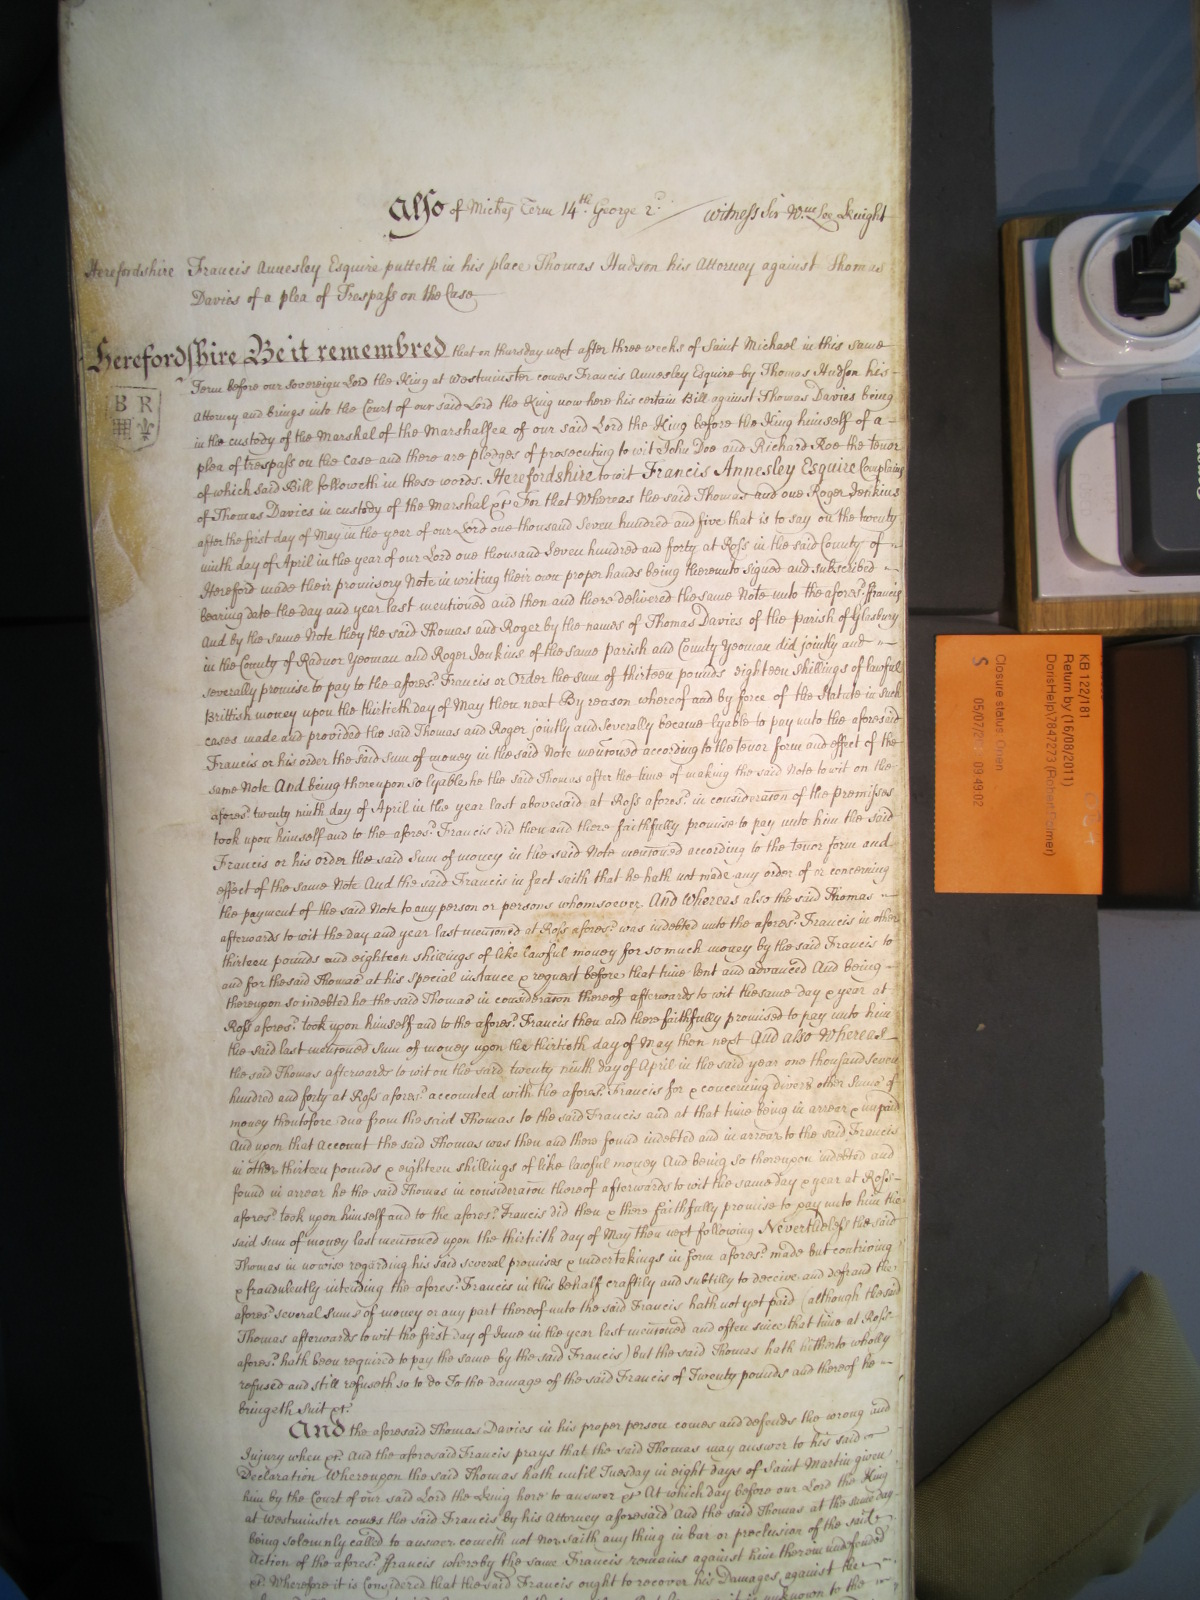 Also of Mich̄es Term 14th. George 2d. / Witness Sir Wm. Lee Knight
Herefordshire Francis Annesley Esquire putteth in his place Thomas Hudson his Attorney against Thomas
Davies of a plea of Trespass on the Case
Herefordshire Be it remembred that on thursday next after three weeks of Saint Michael in this same
Term before our Sovereign Lord the King at Westminster comes Francis Annesley Esquire by Thomas Hudson his
B R
Attorney and brings into the Court of our said Lord the King now here his certain Bill against Thomas Davies being
in the custody of the Marshal of the Marshalsea of our said Lord the King before the King himself of a
plea of trespass on the Case and there are pledges of prosecuting to wit John Doe and Richard Roe the tenor
of which said Bill followeth in these words. Herefordshire to wit Francis Annesley Esquire Complains
of Thomas Davies in custody of the Marshal &c. For that Whereas the said Thomas and one Roger Jenkins
after the first day of May in the year of our Lord one thousand Seven hundred and five that is to say on the twenty
ninth day of April in the year of our Lord one thousand Seven hundred and forty at Ross in the said County of
Hereford made their promisory Note in writing their own proper hands being thereunto signed and subscribed
bearing date the day and year last mentioned and then and there delivered the same Note unto the afores.d ffrancis
And by the same Note they the said Thomas and Roger by the names of Thomas Davies of the parish of Glasbury
in the County of Radnor Yeoman and Roger Jenkins of the same parish and County Yeoman did jointly and
severally promise to pay to the afores.d Francis or Order the sum of thirteen pounds eighteen shillings of lawful
Brittish money upon the thirtieth day of May then next By reason whereof and by force of the Statute in such
cases made and provided the said Thomas and Roger jointly and severally became lyable to pay unto the aforesaid
Francis or his order the said sum of money in the said Note menc̄oned according to the tenor form and effect of the
same Note And being thereupon so lyable he the said Thomas after the time of making the said Note to wit on the
afores.d twenty ninth day of April in the year last abovesaid at Ross afores.d in considerac̄on of the premisses
took upon himself and to the afores.d Francis did then and there faithfully promise to pay unto him the said
Francis or his order the said Sum of money in the said Note menc̄oned according to the tenor form and
effect of the same Note And the said Francis in fact saith that he hath not made any order of or concerning
the payment of the said Note to any person or persons whomsoever And Whereas also the said Thomas
afterwards to wit the day and year last menc̄oned at Ross afores.d was indebted unto the afores.d Francis in other
thirteen pounds and eighteen shillings of like lawful money for so much money by the said Francis to
and for the said Thomas at his Special instance & request before that time lent and advanced And being
thereupon so indebted he the said Thomas in considerac̄on thereof afterwards to wit the same day & year at
Ross afores.d took upon himself and to the afores.d Francis then and there faithfully promised to pay unto him
the said last menc̄oned sum of money upon the thirtieth day of May then next And also Whereas
the said Thomas afterwards to wit on the said twenty ninth day of April in the said year one thousand seven
hundred and forty at Ross afores.d accounted with the afores.d Francis for & concerning divers other Sums of
money theretofore due from the said Thomas to the said Francis and at that time being in arrear & unpaid
And upon that Account the said Thomas was then and there found indebted and in arrear to the said Francis
in other thirteen pounds & eighteen shillings of like lawful money And being so thereupon indebted and
found in arrear he the said Thomas in considerac̄on thereof afterwards to wit the same day & year at Ross
afores.d took upon himself and to the afores.d Francis did then & there faithfully promise to pay unto him the
said sum of money last menc̄oned upon the thirtieth day of May then next following Nevertheless the said
Thomas in nowise regarding his said several promises & undertakings in form afores.d made but contriving
& fraudulently intending the afores.d Francis in this behalf craftily and subtilly to deceive and defraud the
afores.d several sums of money or any part thereof unto the said Francis hath not yet paid (although the said
Thomas afterwards to wit the first day of June in the year last menc̄oned and often since that time at Ross
afores.d hath been required to pay the same by the said Francis) but the said Thomas hath hitherto wholly
refused and still refuseth so to do To the damage of the said Francis of Twenty pounds and thereof he
bringeth Suit &c.
And the aforesaid Thomas Davies in his proper person comes and defends the wrong and
Injury when &c. And the aforesaid Francis prays that the said Thomas may answer to his said
Declaration Whereupon the said Thomas hath until Tuesday in eight days of Saint Martin given
him by the Court of our said Lord the King here to answer &c. At which day before our Lord the King
at Westminster comes the said Francis by his Attorney aforesaid And the said Thomas at the same day
being solemnly called to answer cometh not nor saith any thing in bar or preclusion of the said
Action of the afores.d ffrancis whereby the same Francis remains against him therein undefended
&c. Wherefore it is Considered that the said Francis ought to recover his Damages against the
KB 122/181
Return by (16/08/2011)
DorisHelp\7847273 (Robert Palmer)
Closure status: Open
S 05/07/ 09:49:02